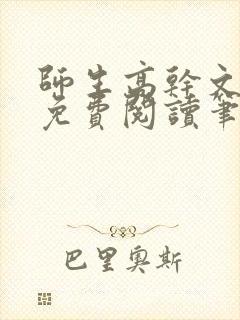 師生高幹文
免費閱讀筆
巴里奧斯